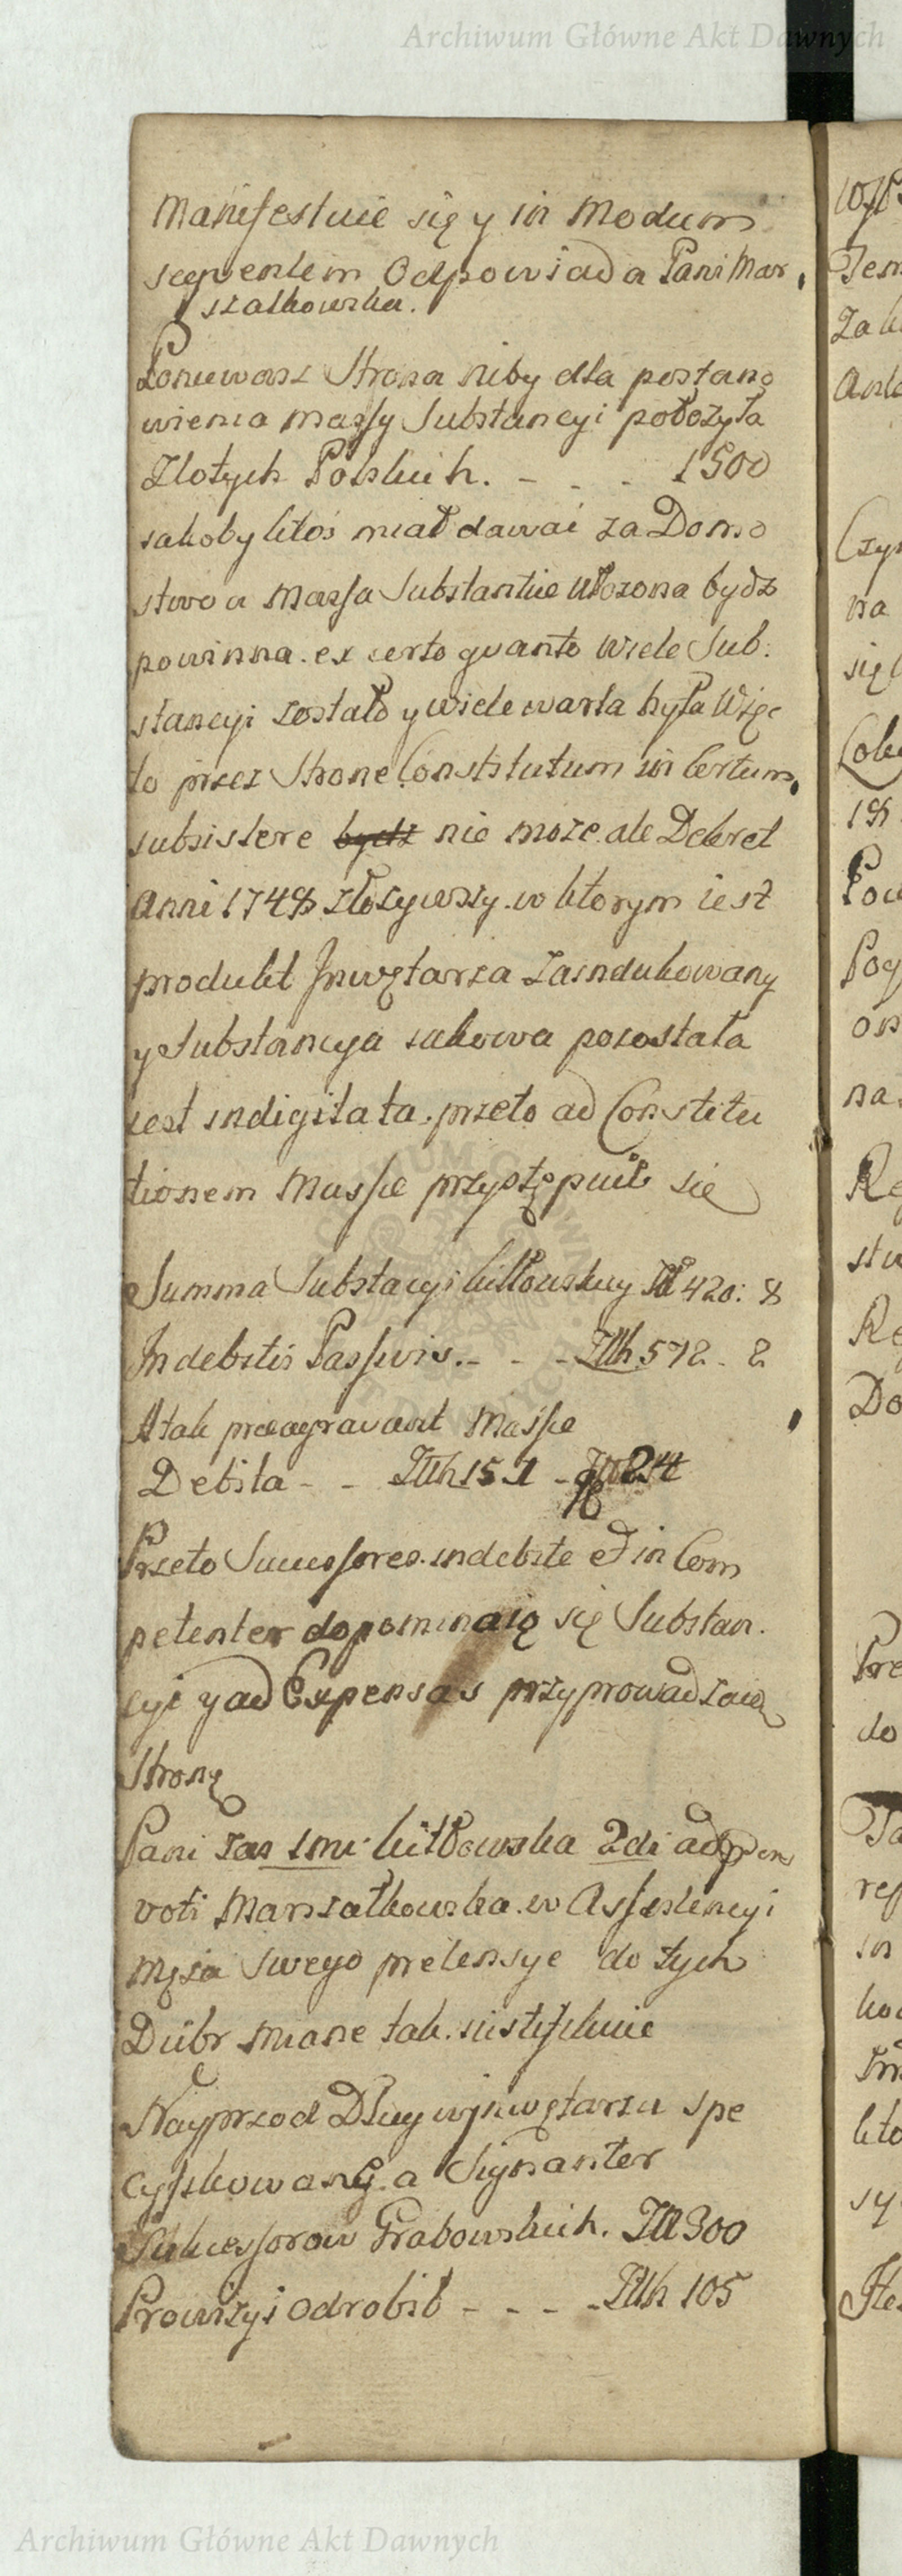 Archiwum Główne Akt Dawnych
Manifestuie się y in Modum
seqventem Odpowiada Pani Mar
szalkowska.
Poniewasz Strona niby dla postano
wienia massy Substancyi położyła
Zlotych Polskich. - - - 1500
iakoby ktoś miał dawać za Domo
stwo a Massa Substantiae ułozona bydz
powinna. ex certo qvanto wiele Sub.
stancyi zostało y wiele warta była Więc
to przez Strone Constitutum in Certum
subsistere bydz nie moze. ale Dekret
Anni 1748 złozywszy. w ktorym iest
produkt Inwętarza zaindukowany
y Substancya iakowa pozostała
iest indigitata. przeto ad Constitu
tionem Massae przystępuie sie
Summa Substacyi kittowskiey Zł 420: 8
In debitis Passivis. - - - Złłh 572 - 2
A tak praeagravant Massae
Debita - - Złłh 151 -
Przeto Successores. indebite et in Com
petenter dopominaią się Substan.
cyi y ad Expensas przyprowadzaią
Stronę
Pani zas 1mi kittowska 2di ad
voti Marszałkowska. w Assystencyi
Męża Swego pretensye do tych
Dóbr miane tak. iustifikuie
Nayprzod Długi w Inwętarzu spe
cyfikowany. a Signanter
Sukcessorow Grabowskich. Złł 300
Prowizyi odrobił - - - - Złłh 105
Archiwum Główne Akt Dawnych